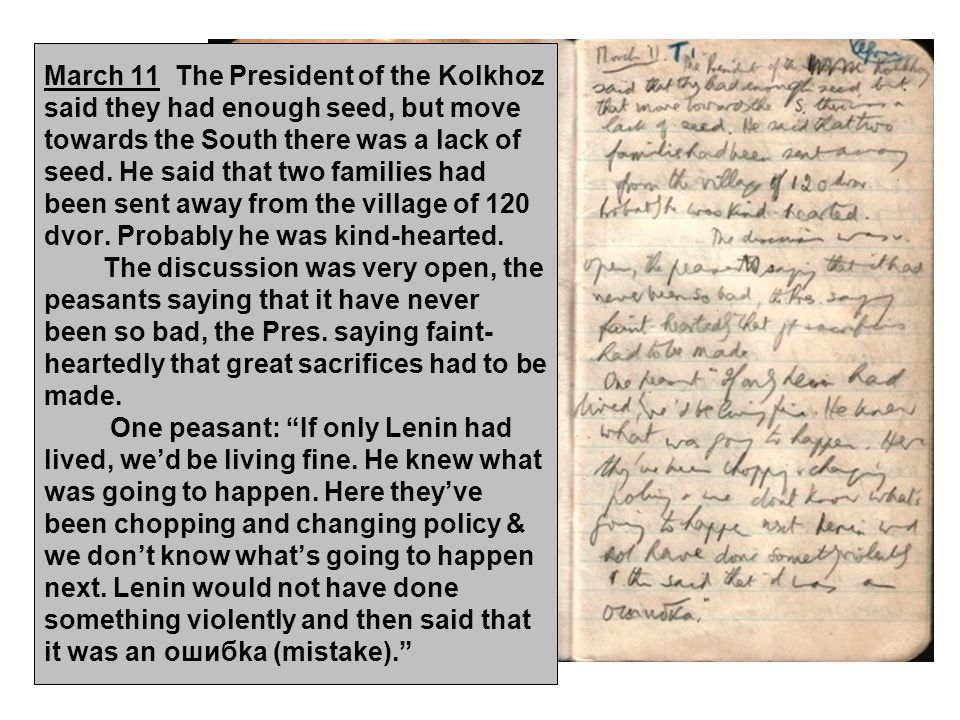 March 11 The President of the Kolkhoz
said they had enough seed, but move
towards the South there was a lack of
seed. He said that two families had
been sent away from the village of 120
dvor. Probably he was kind-hearted.
The discussion was very open, the
peasants saying that it have never
been so bad, the Pres. saying faint-
heartedly that great sacrifices had to be
made.
One peasant: “If only Lenin had
lived, we’d be living fine. He knew what
was going to happen. Here they’ve
been chopping and changing policy &
we don’t know what’s going to happen
next. Lenin would not have done
something violently and then said that
it was an ошибка (mistake).”
March 11. The President of the Kolkhoz
said that they had enough seed, but
that more towards the S. there was a
lack of seed. He said that two
families had been sent away
from the village of 120 dvor
he was kind-hearted.
The discussion was v.
open, the peasants saying that it had
never been so bad, the Pres. saying
faint-heartedly that sacrifices
had to be made.
One peasant "If only Lenin had
lived, we'd be living fine. He knew
what was going to happen. Here
they've been chopping & changing
policy & we don't know what's
going to happen next. Lenin would
not have done something violently
& then said that it was an
ошибка."